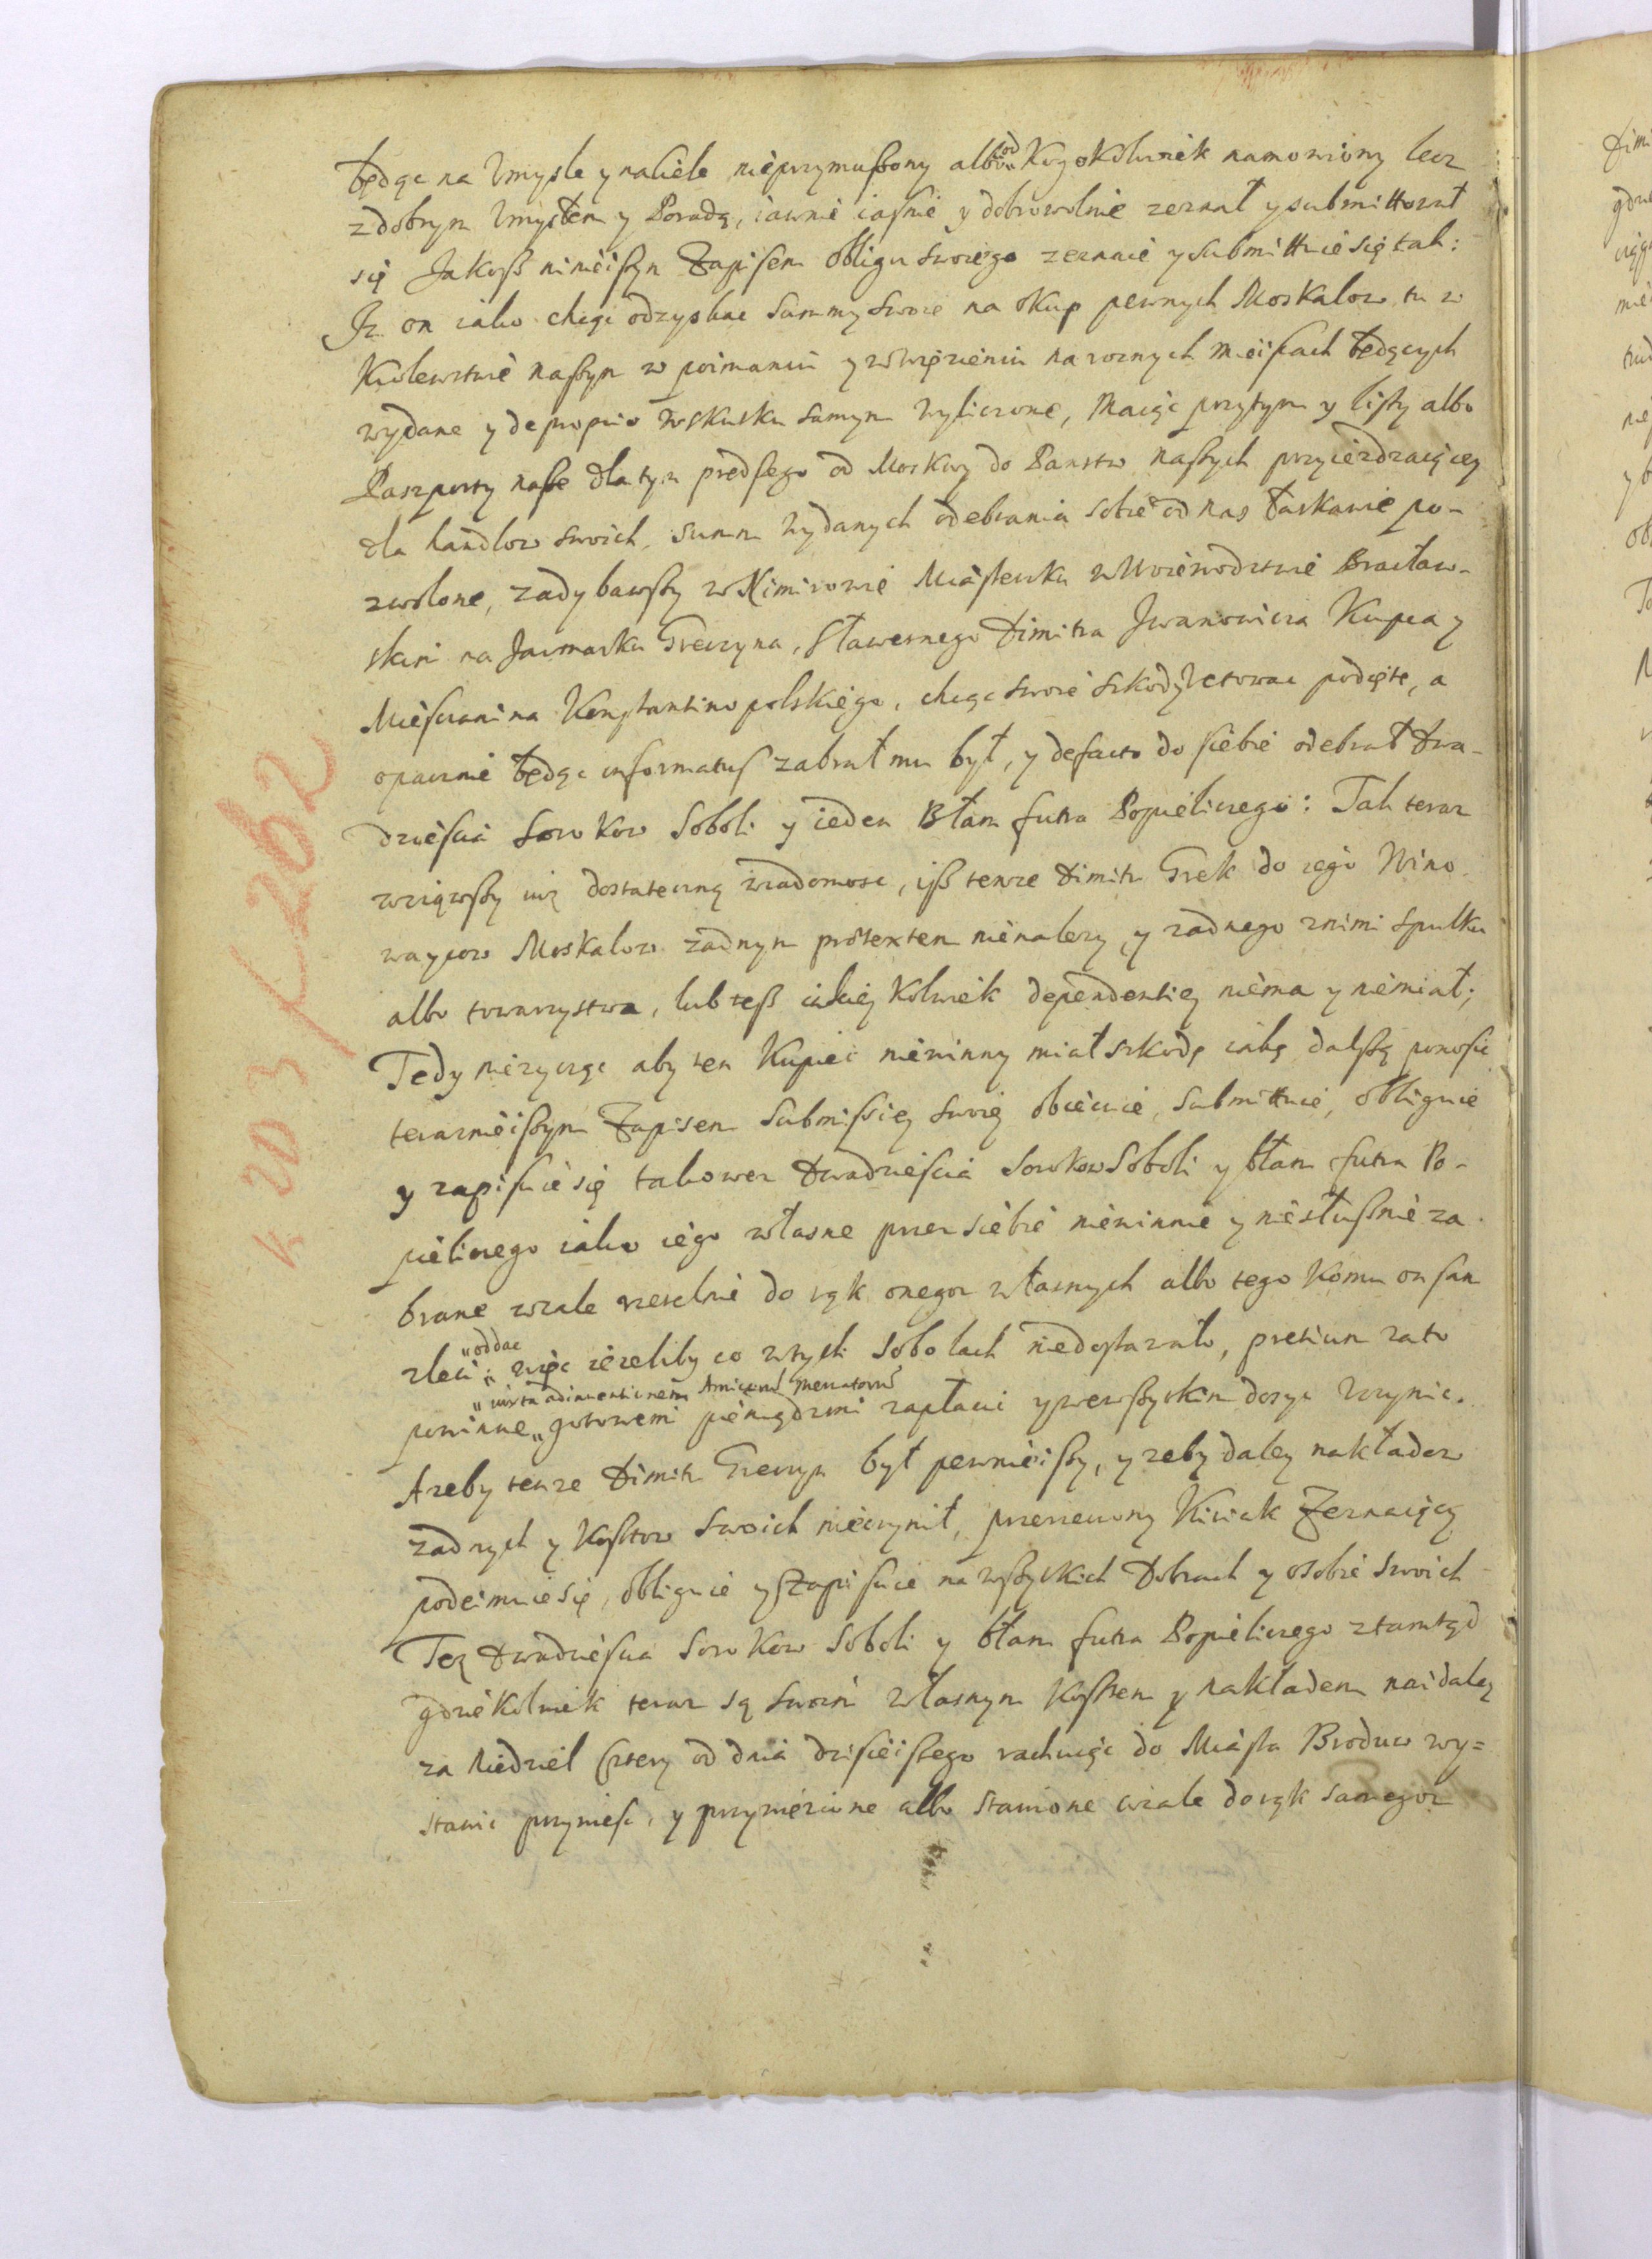 będąc na Vmysle y naciele nieprzymuszony albo od Kogokolwiek namowiony lecz
z dobrym Vmysłem y Poradą, iawnie iasnie y dobrowolnie zeznał y submittował
się Jakosz ninieiszym Zapisem obligu swoiego zeznaie y submittuie się tak:
Jz on iako chcąc odzyskac summy swoie na okup pewnych Moskalow tu w
Krolewstwie naszym w poimaniu y w więzieniu na roznych mieiscach będących
wydane y de proprio w skutku samym wyliczone, Maiąc przytym y listy albo
Paszporty nasze dla tym prędszego od Moskwy do Panstw naszych przyiezdzaiącey
dla handlow swoich, summ wydanych odebrania sobie od nas łaskawie po-
zwolone, zadybawszy w Nimirowie Miasteczku w Woiewodztwie Bracław-
skim na Jarmarku Greczyna, Sławetnego Dimitra Jwanowicza Kupca y
Miesczanina Konstantinopolskiego, chcąc swoie szkody Vetowac podięte, a
opacznie będąc informatus zabrał mu był, y de facto do siebie odebrał Dwa-
dziescia Sorokow Soboli y ieden Błam futra Popieliczego: Tak teraz
wziąwszy iuz dostateczną wiadomosc, isz tenze Dimitr Grek do iego Wino-
waycow Moskalow zadnym praetextem nienalezy, y zadnego z nimi spulku
albo towarzystwa, lub tesz iakiey kolwiek dependentiey niema y niemiał;
Tedy niezycząc aby ten Kupiec niewinny miał szkodę iaką dalszą ponosic
teraznieiszym Zapisem Submissiey swoiey obiecuie, submittuie, obliguie
y zapisuie się takowez Dwadziescia Sorokow Soboli y błam futra Po-
pieliczego iako iego własne przez siebie niewinnie y niesłusznie za-
brane wcale rzetelnie do rąk onegoz własnych albo tego komu on sam
zleci oddac: więc iezeliby co w tych Sobolach niedostawało, pretium za to
powinne iuxta adinventionem Amicorum Mercatorum gotowemi pieniądzmi zapłacic y we wszystkim dosyc Vczynic.
A zeby tenze Dimitr Greczyn był pewnieiszy, y zeby daley nakładow
zadnych y kosztow swoich nieczynił, przerzeczony Kiriak Zeznaiący
podeimuie się, obliguie y Zapisuie na wszystkich Dobrach y osobie swoich
Tez Dwadziescia Sorokow Soboli y błam futra Popieliczego ztamtąd
gdziekolwiek teraz są swoim własnym kosztem y nakładem naidaley
za Niedziel cztery od dnia dzisieiszego rachuiąc do Miasta Brodow wy=
stawic przyniesc, y przyniezione albo stawione wcale do rąk samegoz
k 203 / 262